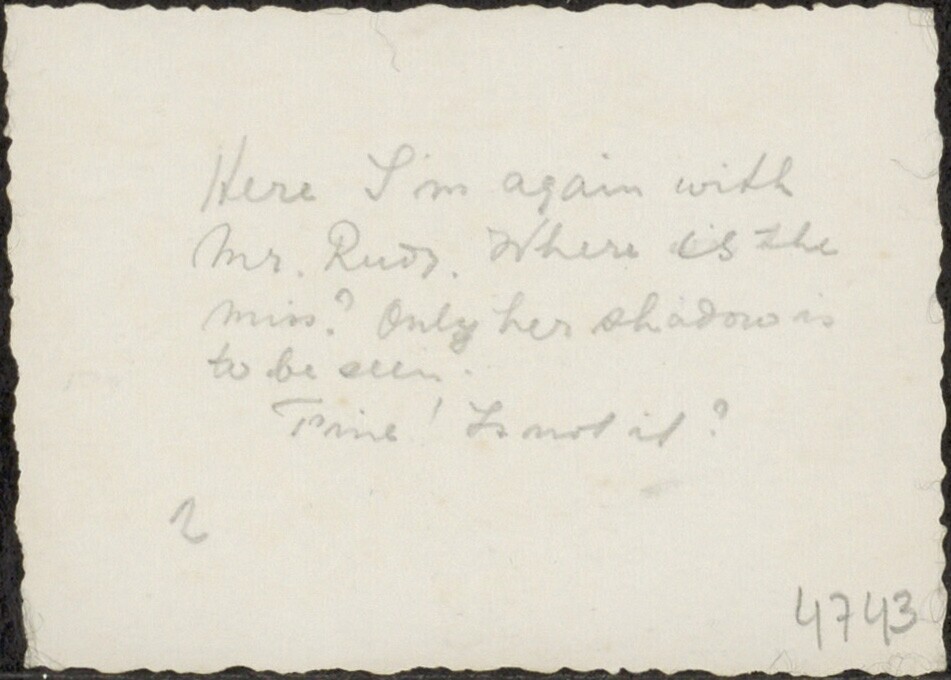 Here I'm again with
Mr. Rudy. Where is the
miss? Only her shadow is
to be seen.
Fine! Is not it?
2
4743